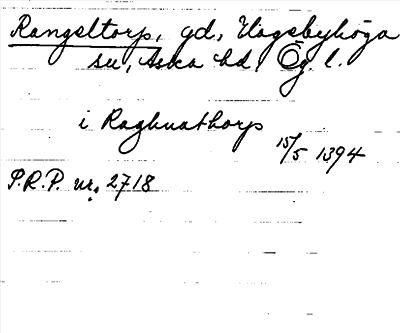 Rangeltorp, gd, Hagebyhöga
sn, Aska hd, Ög. l.
i Ragnuathorp
15/5 1394
P.R.P. nr. 2718